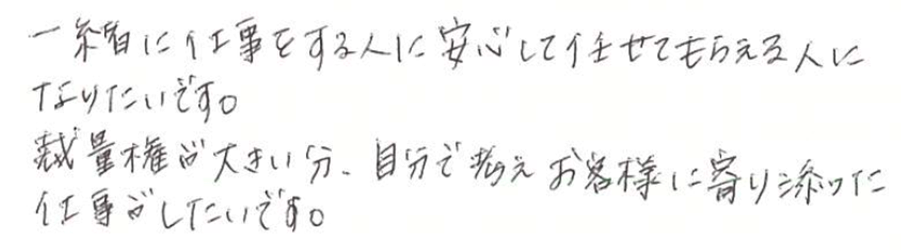 一緒に仕事をする人に安心して任せてもらえる人に
なりたいです。
裁量権が大きい分、自分で考えお客様に寄り添った
仕事がしたいです。